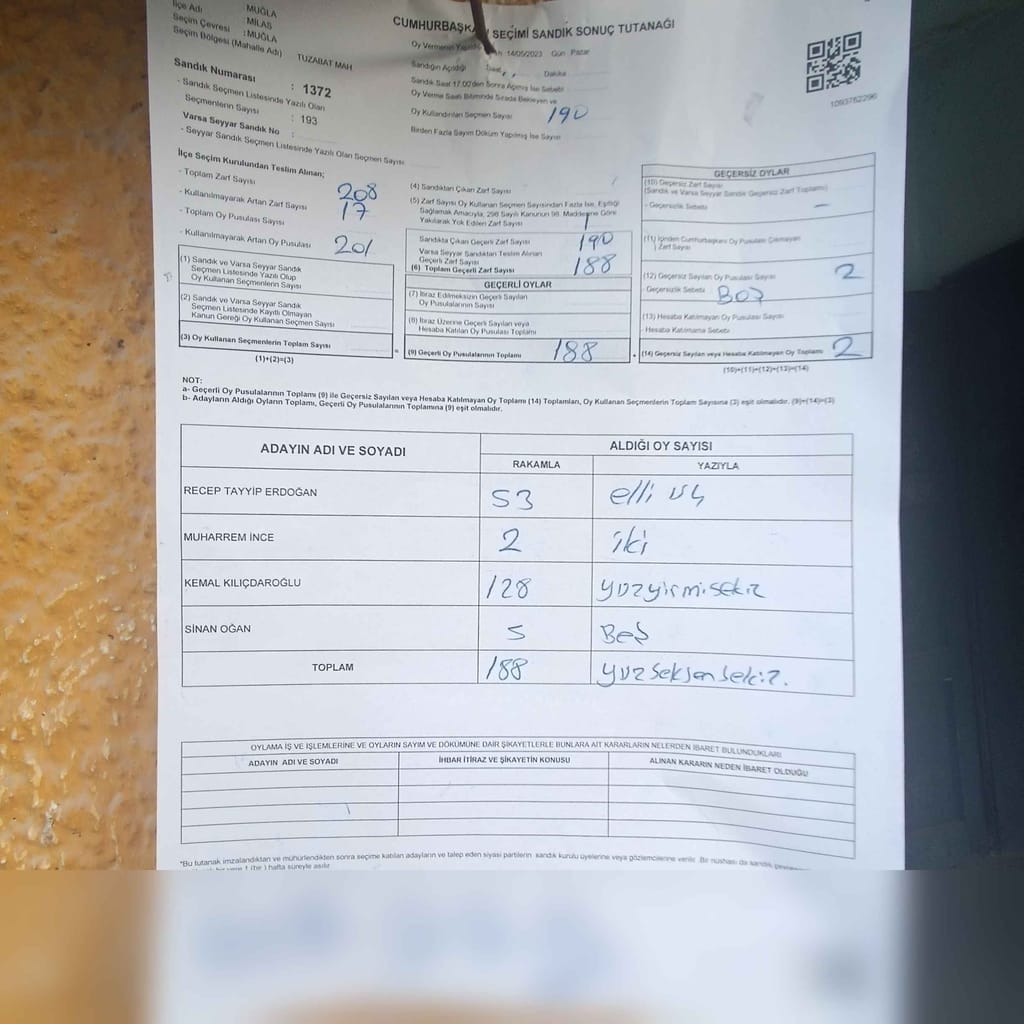 İlçe Adı : MUĞLA
: MİLAS
Seçim Çevresi : MUĞLA
Seçim Bölgesi (Mahalle Adı) TUZABAT MAH
Sandık Numarası : 1372
- Sandık Seçmen Listesinde Yazılı Olan
Seçmenlerin Sayısı : 193
Varsa Seyyar Sandık No :
- Seyyar Sandık Seçmen Listesinde Yazılı Olan Seçmen Sayısı
CUMHURBAŞKA SEÇİMİ SANDIK SONUÇ TUTANAĞI
Oy Vermenin 14/05/2023 Gün Pazar
Sandığın Açıldığı Saat Dakika
Sandık Saat 17.00'den Sonra Açılmış İse Sebebi
Oy Verme Saati Bitiminde Sırada Bekleyen ve
Oy Kullandırılan Seçmen Sayısı 190
Birden Fazla Sayım Döküm Yapılmış İse Sayısı
1093762296
İlçe Seçim Kurulundan Teslim Alınan;
- Toplam Zarf Sayısı 208
- Kullanılmayarak Artan Zarf Sayısı 17
- Toplam Oy Pusulası Sayısı
- Kullanılmayarak Artan Oy Pusulası 201
(1) Sandık ve Varsa Seyyar Sandık
Seçmen Listesinde Yazılı Olup
Oy Kullanan Seçmenlerin Sayısı
(2) Sandık ve Varsa Seyyar Sandık
Seçmen Listesinde Kayıtlı Olmayan
Kanun Gereği Oy Kullanan Seçmen Sayısı
(3) Oy Kullanan Seçmenlerin Toplam Sayısı
(1)+(2)=(3)
(4) Sandıktan Çıkan Zarf Sayısı
(5) Zarf Sayısı Oy Kullanan Seçmen Sayısından Fazla İse, Eşitliği
Sağlamak Amacıyla, 298 Sayılı Kanunun 98. Maddesine Göre
Yakılarak Yok Edilen Zarf Sayısı
Sandıkta Çıkan Geçerli Zarf Sayısı 190
Varsa Seyyar Sandıktan Teslim Alınan
Geçerli Zarf Sayısı
(6) Toplam Geçerli Zarf Sayısı 188
GEÇERLİ OYLAR
(7) İtiraz Edilmeksizin Geçerli Sayılan
Oy Pusulalarının Sayısı
(8) İtiraz Üzerine Geçerli Sayılan veya
Hesaba Katılan Oy Pusulası Toplamı
= (9) Geçerli Oy Pusulalarının Toplamı 188 +
GEÇERSİZ OYLAR
(10) Geçersiz Zarf Sayısı
(Sandık ve Varsa Seyyar Sandık Geçersiz Zarf Toplamı)
- Geçersizlik Sebebi –
(11) İçinden Cumhurbaşkanı Oy Pusulası Çıkmayan
Zarf Sayısı
(12) Geçersiz Sayılan Oy Pusulası Sayısı 2
- Geçersizlik Sebebi BOŞ
(13) Hesaba Katılmayan Oy Pusulası Sayısı
- Hesaba Katılmama Sebebi
(14) Geçersiz Sayılan veya Hesaba Katılmayan Oy Toplamı 2
(10)+(11)+(12)+(13)=(14)
NOT:
a- Geçerli Oy Pusulalarının Toplamı (9) ile Geçersiz Sayılan veya Hesaba Katılmayan Oy Toplamı (14) Toplamları, Oy Kullanan Seçmenlerin Toplam Sayısına (3) eşit olmalıdır. (9)+(14)=(3)
b- Adayların Aldığı Oyların Toplamı, Geçerli Oy Pusulalarının Toplamına (9) eşit olmalıdır.
ADAYIN ADI VE SOYADI ALDIĞI OY SAYISI
RAKAMLA YAZIYLA
RECEP TAYYİP ERDOĞAN 53 elli üç
MUHARREM İNCE 2 iki
KEMAL KILIÇDAROĞLU 128 yüzyirmisekiz
SİNAN OĞAN 5 Beş
TOPLAM 188 yüzseksensekiz.
OYLAMA İŞ VE İŞLEMLERİNE VE OYLARIN SAYIM VE DÖKÜMÜNE DAİR ŞİKAYETLERLE BUNLARA AİT KARARLARIN NELERDEN İBARET BULUNDUKLARI
ADAYIN ADI VE SOYADI İHBAR İTİRAZ VE ŞİKAYETİN KONUSU ALINAN KARARIN NEDEN İBARET OLDUĞU
*Bu tutanak imzalandıktan ve mühürlendikten sonra seçime katılan adayların ve talep eden siyasi partilerin sandık kurulu üyelerine veya gözlemcilerine verilir. Bir nüshası da sandık
1 (bir ) hafta süreyle asılır.